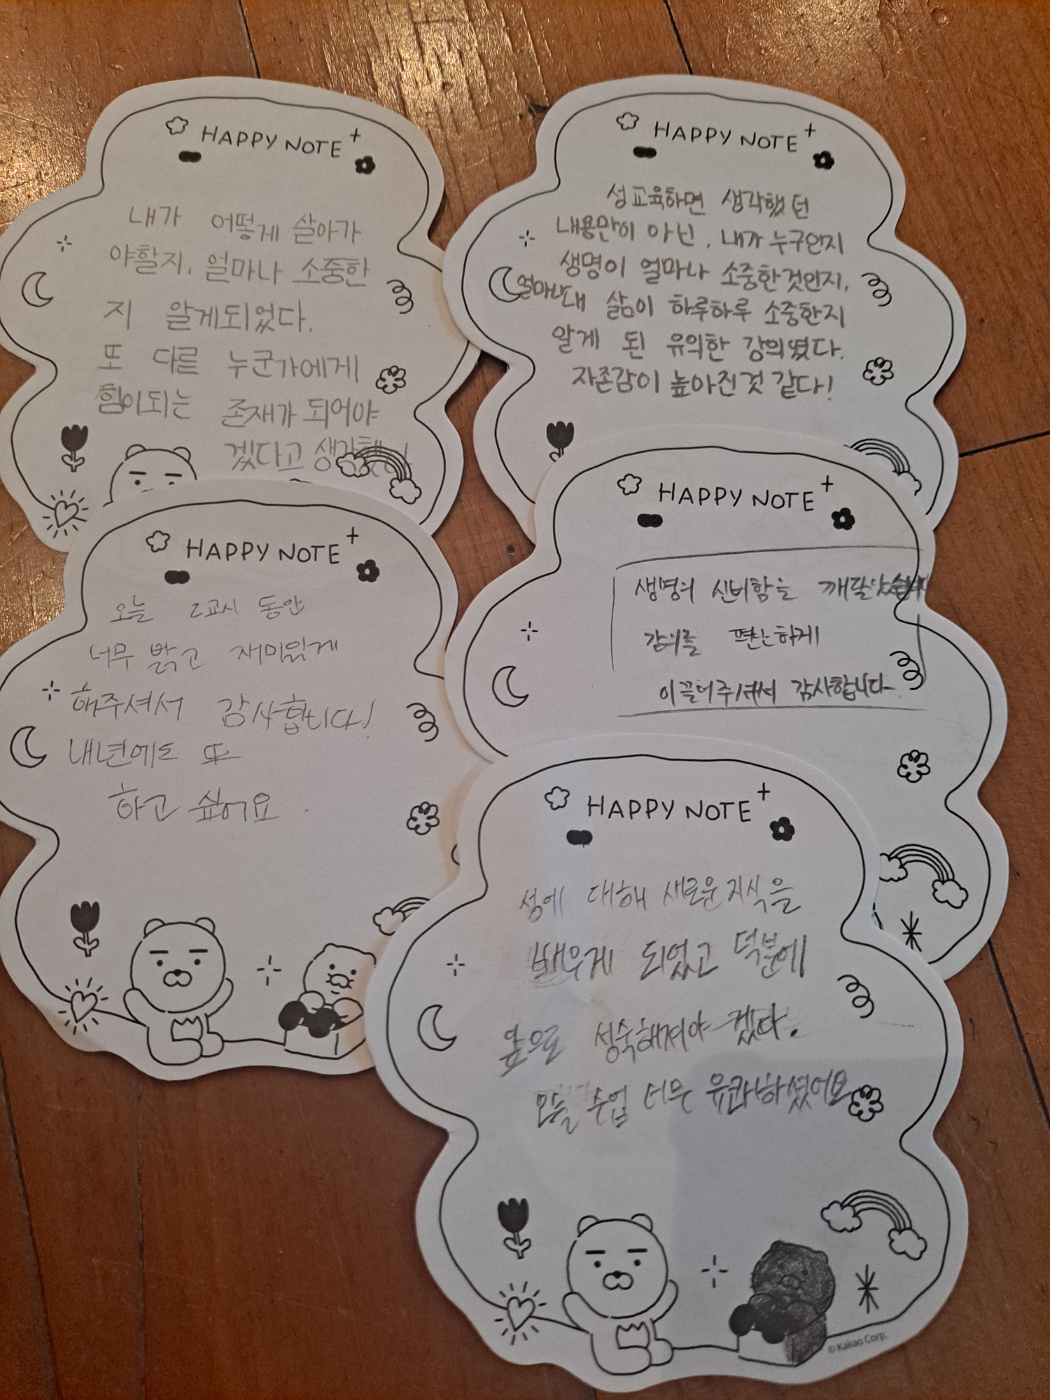 HAPPY NOTE
내가 어떻게 살아가
야할지, 얼마나 소중한
지 알게되었다.
또 다른 누군가에게
힘이되는 존재가 되어야
겠다고 생각했
HAPPY NOTE
성교육하면 생각했던
내용만이 아닌, 내가 누구인지
생명이 얼마나 소중한것인지,
얼마나 내 삶이 하루하루 소중한지
알게 된 유의한 강의였다.
자존감이 높아진것 같다!
HAPPY NOTE
오늘 2교시 동안
너무 밝고 재미있게
해주셔서 감사합니다!
내년에도 또
하고 싶어요.
HAPPY NOTE
생명의 신비함을 깨달았습니다
강의를 편안하게
이끌어주셔서 감사합니다.
HAPPY NOTE
성에 대해 새로운 지식을
배우게 되었고 덕분에
앞으로 성숙해져야 겠다.
오늘 수업 너무 유쾌하셨어요
©Kakao Corp.